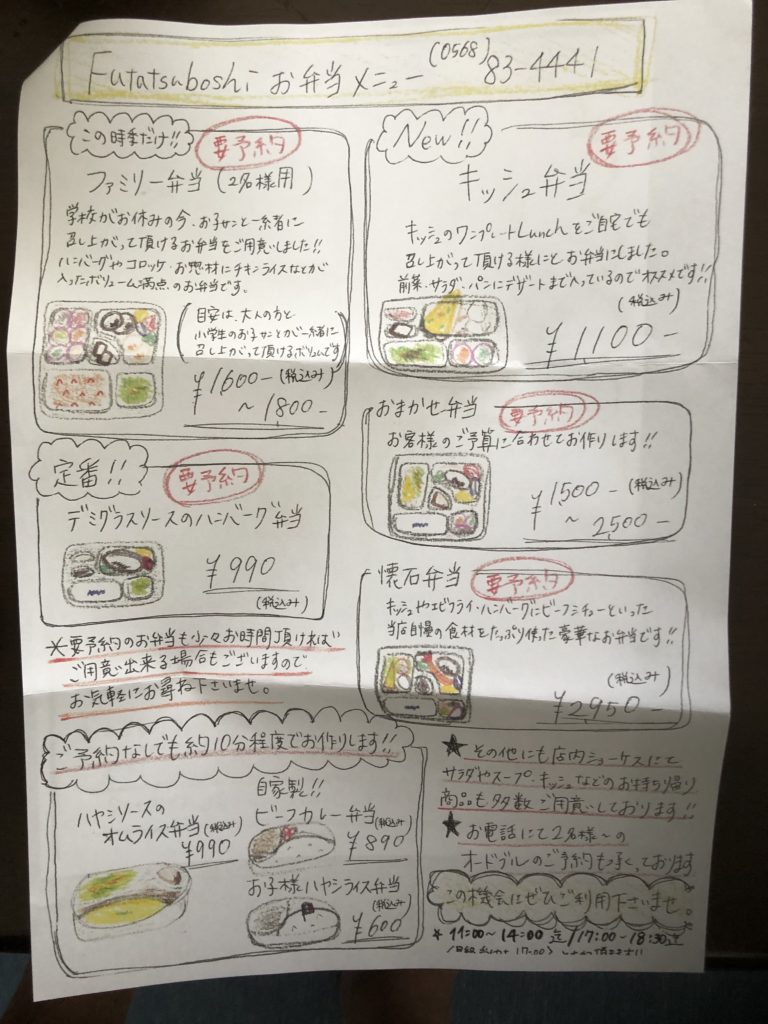 Futatsuboshi お弁当メニュー (0568) 83-4441
この時季だけ!!
要予約
ファミリー弁当 (2名様用)
学校がお休みの今、お子さんと一緒に
召し上がって頂けるお弁当をご用意しました!!
ハンバーグやコロッケ・お惣材にチキンライスなどが
入ったボリューム満点のお弁当です。
目安は、大人の方と
小学生のお子さんとが一緒に
召し上がって頂けるボリュムです
¥1600- (税込み)
～1800-
New!!
要予約
キッシュ弁当
キッシュのワンプレートLunchをご自宅でも
召し上がって頂ける様にと、お弁当にしました。
前菜・サラダ・パンにデザートまで入っているのでオススメです!!
(税込み)
¥1,100-
おまかせ弁当
要予約
お客様のご予算に合わせてお作りします!!
¥1500- (税込み)
～2,500-
定番!!
要予約
デミグラスソースのハンバーグ弁当
¥990
(税込み)
懐石弁当
要予約
キッシュやエビフライ・ハンバーグにビーフシチューといった
当店自慢の食材をたっぷり使った豪華なお弁当です!!
(税込み)
¥2,950-
*要予約のお弁当も少々お時間頂ければ
ご用意出来る場合もございますので
お気軽にお尋ね下さいませ。
ご予約なしでも約10分程度でお作りします!!
ハヤシソースの
オムライス弁当(税込み)
¥990
自家製!!
ビーフカレー弁当(税込み)
¥890
お子様ハヤシライス弁当
(税込み)
¥600
★その他にも店内ショーケースにて
サラダやスープ、キッシュなどのお持ち帰り
商品も多数ご用意しております!!
★お電話にて2名様～の
オードブルのご予約も承っております
この機会にぜひご利用下さいませ。
* 11:00~14:00迄/17:00-18:30迄